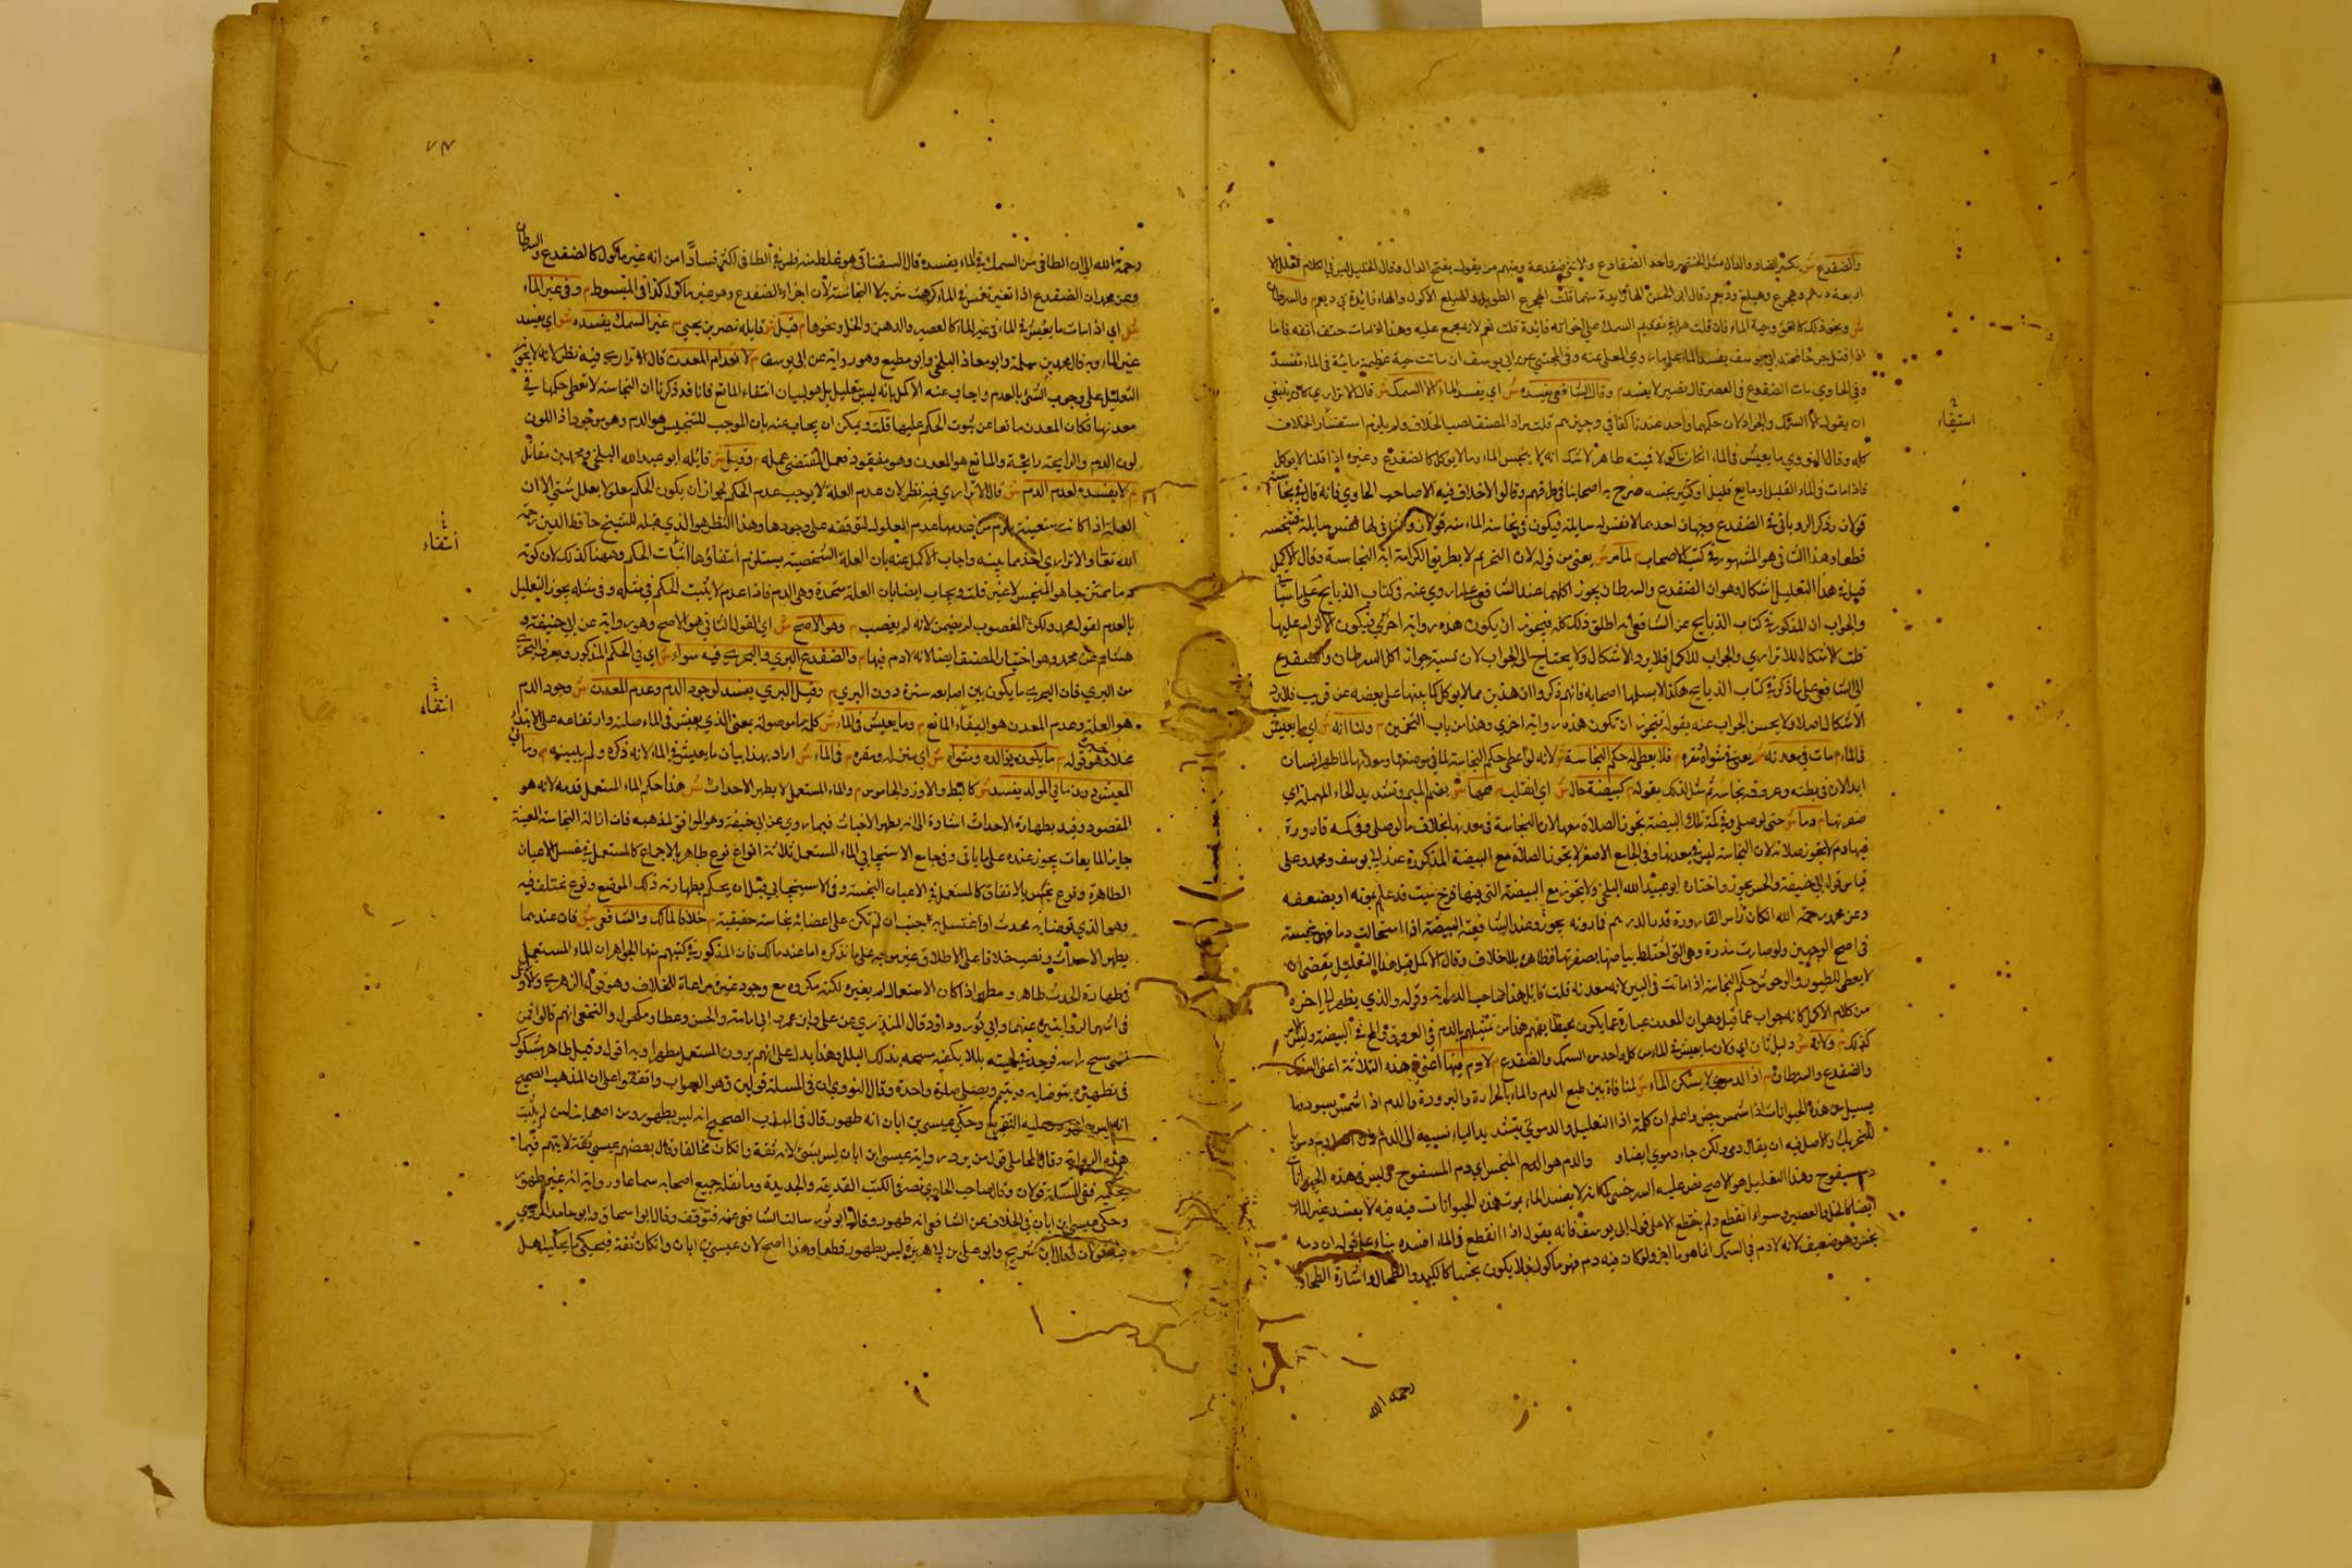 والضفدع ش بكسر الضاد والدال مثل الخنصر واحد الضفادع والانثى ضفدعة ومنهم من يقول بفتح الدال وقال الخليل ليس في الكلام فعلل الا
اربعة درهم وهجرع وهبلع وقال ابو الحسن الهاء زايدة قلت الهجرع الطويل والهبلع الاكول والهاء فايدة م والسرطان
ش ونحو ذلك كالعلق وحية الماء فان قلت هل في تقديم السمك على اخواته فايدة قلت نعم لانه مجمع عليه وهذا اذا مات حتف انفه فاما
اذا قتل جرحا فعند ابي يوسف يفسد الماء على ما روي المعلى عنه وفي المجتبى عن ابي يوسف ان ماتت حية عظيمة مائية في الماء تفسد
وفي الحاوي مات الضفدع في العصير قال نصير لا يفسد م وقال الشافعي يفسده ش اي يفسد الماء م الا السمك ش قال الاتراري كان ينبغي
ان يقول الا السمك والجراد لان حكمهما واحد عندنا كفاني وجيزهم قلت مراد المصنف نصب الخلاف ولم يلزم استفسار الخلاف
كله وقال النووي ما يعيش في الماء ان كان ماكولا فميتته طاهرة لا شك انه لا ينجس الماء وما لا يوكل كالضفدع وغيره اذا قلنا لا يوكل
فاذا مات في الماء القليل او مايع قليل او كثير نجسه صرح به اصحابنا في طرقهم وقالوا لاخلاف فيه الا صاحب الحاوي فانه قال في نجاسته
قولان وذكر الروياني في الضفدع وجهان احدهما لا نفس له سايلة فيكون في نجاسة الماء منه قولان والثاني لها نفس سايلة فتنجسه
قطعا وهذا الثاني هو المشهور في كتب الاصحاب م لما مر ش يعني من قوله لان التحريم لا بطريق الكرامة اية النجاسة وقال الاكمل
قيل في هذا التعليل اشكال وهو ان الضفدع والسرطان يجوز اكلهما عند الشافعي على ما روي عنه في كتاب الذبايح على ما سياتي
والجواب ان المذكور في كتاب الذبايح عن الشافعي انه اطلق ذلك كله فيجوز ان يكون هذه رواية اخرى فيكون الالزام عليها
قلت الاشكال للاتراري والجواب للاكمل فلا يرد الاشكال ولا يحتاج الى الجواب لان نسبة جواز اكل السرطان والضفدع
الى الشافعي على ما ذكر في كتاب الذبايح هكذا لا يسلمها اصحابه فانهم ذكروا ان هذين مما لا يوكل كما بيناه على بعضه عن قريب فلا يرد
الاشكال اصلا ولا يحسن الجواب عنه بقوله فيجوز ان تكون هذه رواية اخرى وهذا من باب التخمين م ولنا انه ش اي ما يعيش
في الماء م مات في معدنه ش يعني في مثواه ومقره م فلا يعطى له حكم النجاسة ش لانه لو اعطى حكم النجاسة لما في موضعها ومعدنها لما طهر انسان
ابدا لان في بطنه وعروقه نجاسة ثم مثل لذلك بقوله م كبيضة حال ش اي انقلب م محها ش بضم الميم وتشديد الحاء المهملة اي
صفرتها م دما ش حتى لو صلى وفي كمه تلك البيضة تجوز الصلاة معها لان النجاسة في معدنها بخلاف ما لو صلى وفي كمه قارورة
فيها دم لا تجوز صلاته لان النجاسة ليس في معدنها وفي الجامع الاصغر لا تجوز الصلاة مع البيضة المذكورة عند ابي يوسف ومحمد وعلى
قياس قول ابي حنيفة والحسن يجوز واختاره ابو عبيد الله البلخي ولا تجوز مع البيضة التي فيها فرخ ميت قد علم بموته او بضعفه
وعن محمد رحمه الله ان كان راس القارورة قدر الدرهم فما دونه يجوز وعند الشافعية البيضة اذا استحالت دما فهي نجسة
في اصح الوجهين ولو صارت مذرة وهي التي اختلط بياضها بصفرتها فطاهرة بلا خلاف وقال الاكمل قيل هذا التعليل يقتضي ان
لا يعطى للطيور والوحوش حكم النجاسة اذا ماتت في البير لانه معدنه قلت قايل هذا صاحب الدراية وقوله والذي يظهر لي الى اخره
من كلام الاكمل كانه جواب عما قيل وهو ان المعدن عبارة عما يكون محيطا يفهم هذا من تمثيلهم بالدم في العروق والمح في البيضة وليس البر
كذلك م ولانه ش دليل ثان اي ولان ما يعيش في الماء من كل واحد من السمك والضفدع م لا دم فيها اعني في هذه الثلاثة اعني السمك
والضفدع والسرطان م اذ الدموي لا يسكن الماء ش لمنافاة بين طبع الدم والماء بالحرارة والبرودة والدم اذا شمس يسود وما
يسيل من هذه الحيوانات اذا شمس يبيض واعلم ان كلمة اذ للتعليل والدموي بتشديد الياء نسبة الى الدم
للتحريك والاصل فيه ان يقال دمي ولكن جاء دموي ايضا م والدم هو المنجس اي دم المسفوح وليس في هذه الحيوانات
دم مسفوح وهذا التعليل هو الاصح نص عليه السرخسي لما انه لا يفسد الماء بموت هذه الحيوانات فيه لا يفسد غير الماء
ايضا كالخل والعصير وسواء انقطع ولم ينقطع الا على قول ابي يوسف فانه يقول اذا انقطع في الماء افسده بناء على قوله ان دمه
نجس وهو ضعيف لانه لا دم في السمك انما هو ماء اجز ولو كان فيه دم فهو ماكول فلا يكون نجسا كالكبد والطحال واشارة الطحاوي
استيفاء
رحمه الله
٧٣
رحمه الله الى ان الطافي من السمك في الماء يفسده قال السغناقي هو غلط منه فليس في الطافي اكثر فسادا من انه غير ماكول كالضفدع والسرطان
وعن محمد ان الضفدع اذا تفتت في الماء كرهت شربه لا للنجاسة لان اجزاء الضفدع وهو غير ماكول كذا في المبسوط م وفي غير الماء
ش اي اذا مات ما يعيش في الماء في غير الماء كالعصير والدهن والخل ونحوها م قيل ش قايله نصر بن يحيى م غير السمك يفسده ش اي يفسد
غير الماء وبه قال محمد بن سلمة وابو معاذ البلخي وابو مطيع وهو رواية عن ابي يوسف م لانعدام المعدن قال الاتراري فيه نظر لانه لا يجوز
التعليل على وجوب الشيء بالعدم واجاب عنه الاكمل بانه ليس بتعليل بل هو لبيان انتفاء المانع فانا قد ذكرنا ان النجاسة لا تعطى حكمها في
معدنها فكان المعدن مانعا عن ثبوت الحكم عليها قلت ويمكن ان يجاب عنه بان الموجب للتنجيس هو الدم وهو موجود اذ اللون
لون الدم والرايحة رايحة والمانع هو المعدن وهو مفقود فعمل المقتضى عمله م وقيل ش قايله ابو عبد الله البلخي ومحمد بن مقاتل
م لا يفسده لعدم الدم ش قال الاتراري فيه نظر لان عدم العلة لا يوجب عدم الحكم لجواز ان يكون الحكم معلولا بعلل شتى الا ان
العلة اذا كانت متعينة يلزم من عدمها عدم المعلول لتوقفه على وجودها وهذا النظر هو الذي قبله للشيخ حافظ الدين رحمه
الله تعالى والاتراري اخذه ما بينه واجاب الاكمل عنه بان العلة الشخصية يستلزم انتفاؤها انتفاء الحكم وههنا كذلك لان كونه
دما هو المنجس لا غير قلت ويجاب ايضا بان العلة متحدة وهي الدم فاذا عدم لا يثبت الحكم في مثله وفي مثله يجوز التعليل
بالعدم لقول محمد ولكن المغصوب لم يضمن لانه لم يغصب م وهو الاصح ش اي القول الثاني هو الاصح وهو رواية عن ابي حنيفة و
هشام عن محمد وهو اختيار المصنف ايضا لانه لا دم فيها م والضفدع البري والبحري فيه سواء ش اي في الحكم المذكور ويعرف البحري
من البري فان البحري ما يكون بين اصابعه سترة دون البري م وقيل البري يفسد لوجود الدم وعدم المعدن ش وجود الدم
هو العلة وعدم المعدن هو انتفاء المانع م وما يعيش في الماء ش كلمة ما موصولة بمعنى الذي يعيش في الماء صلته وارتفاعه على الابتداء
بخلاف قوله م ما يكون توالده ومثواه ش اي منزله ومقره م في الماء ش اراد بهذا بيان ما يعيش في الماء لانه ذكره ولم يبينه م وما في
المعيش دون مائي المولد يفسد ش كالبط والاوز والجاموس م والماء المستعمل لا يطهر الاحداث ش هذا حكم الماء المستعمل قدمه لانه هو
المقصود وقيد بطهارة الاحداث اشارة الى انه يطهر الاخباث فيما روي عن ابي حنيفة وهو الموافق لمذهبه فان ازالة النجاسة العينية
جايز بالمايعات يجوز عنده على ما ياتي وفي جامع الاسبيجابي الماء المستعمل ثلاثة انواع نوع طاهر بالاجماع كالمستعمل في غسل الاعيان
الطاهرة ونوع نجس بالاتفاق كالمستعمل في الاعيان النجسة وفي الاسبيجابي قبل ان يحكم بطهارة ذلك الموضع ونوع مختلف فيه
وهو الذي توضا به محدث او اغتسل به جنب ان لم تكن على اعضائه نجاسة حقيقية م خلافا لمالك والشافعي ش فان عندهما
يطهر الاحداث ونصب خلافا على الاطلاق غير موجه على ما نذكره اما عند مالك فان المذكور في كتبهم منها الجواهر ان الماء المستعمل
في طهارة الحدث طاهر ومطهر اذا كان الاستعمال لم يغيره لكنه مكروه مع وجود غيره مراعاة للخلاف وهو قول الزهري والاوزاعي
في اشهر الروايتين عنهما وابي ثور وداود قال المنذري عن علي وابن عمر وابي امامة والحسن وعطاء ومكحول والنخعي انهم قالوا فيمن
نسي مسح راسه فوجد في لحيته بللا يكفيه مسحه بذلك البلل وهذا يدل على انهم يرون المستعمل مطهرا وبه اقول وقيل طاهر مشكوك
في تطهيره يتوضا به ويتيمم ويصلي صلوة واحدة وقال النووي ان في المسئلة قولين وهو الصواب واتفقوا على ان المذهب الصحيح
انه ليس بطهور وعليه التفريع وحكي عيسى بن ابان انه طهور قال في المهذب الصحيح انه ليس بطهور ومن اصحابنا من لم يثبت
هذه الرواية وقال المحاملي قول من يرد رواية عيسى ابن ابان ليس بشيء لانه ثقة وان كان مخالفا وقال بعضهم عيسى ثقة لا يتهم فيما
يحكيه ففي المسئلة قولان وقال صاحب الحاوي نصه في الكتب القديمة والجديدة وما نقله جميع اصحابه سماعا ورواية انه غير طهور
وحكى عيسى ابن ابان في الخلاف عن الشافعي انه طهور وقال ابو ثور سالت الشافعي عنه فتوقف وقال ابو اسحاق وابو حامد المروزي
فيه قولان وقال ابن شريح وابو علي بن ابي هريرة ليس بطهور قطعا وهذا اصح لان عيسى بن ابان وان كان ثقة فيحكي ما يحكيه اهل
انتفاء
انتفاء